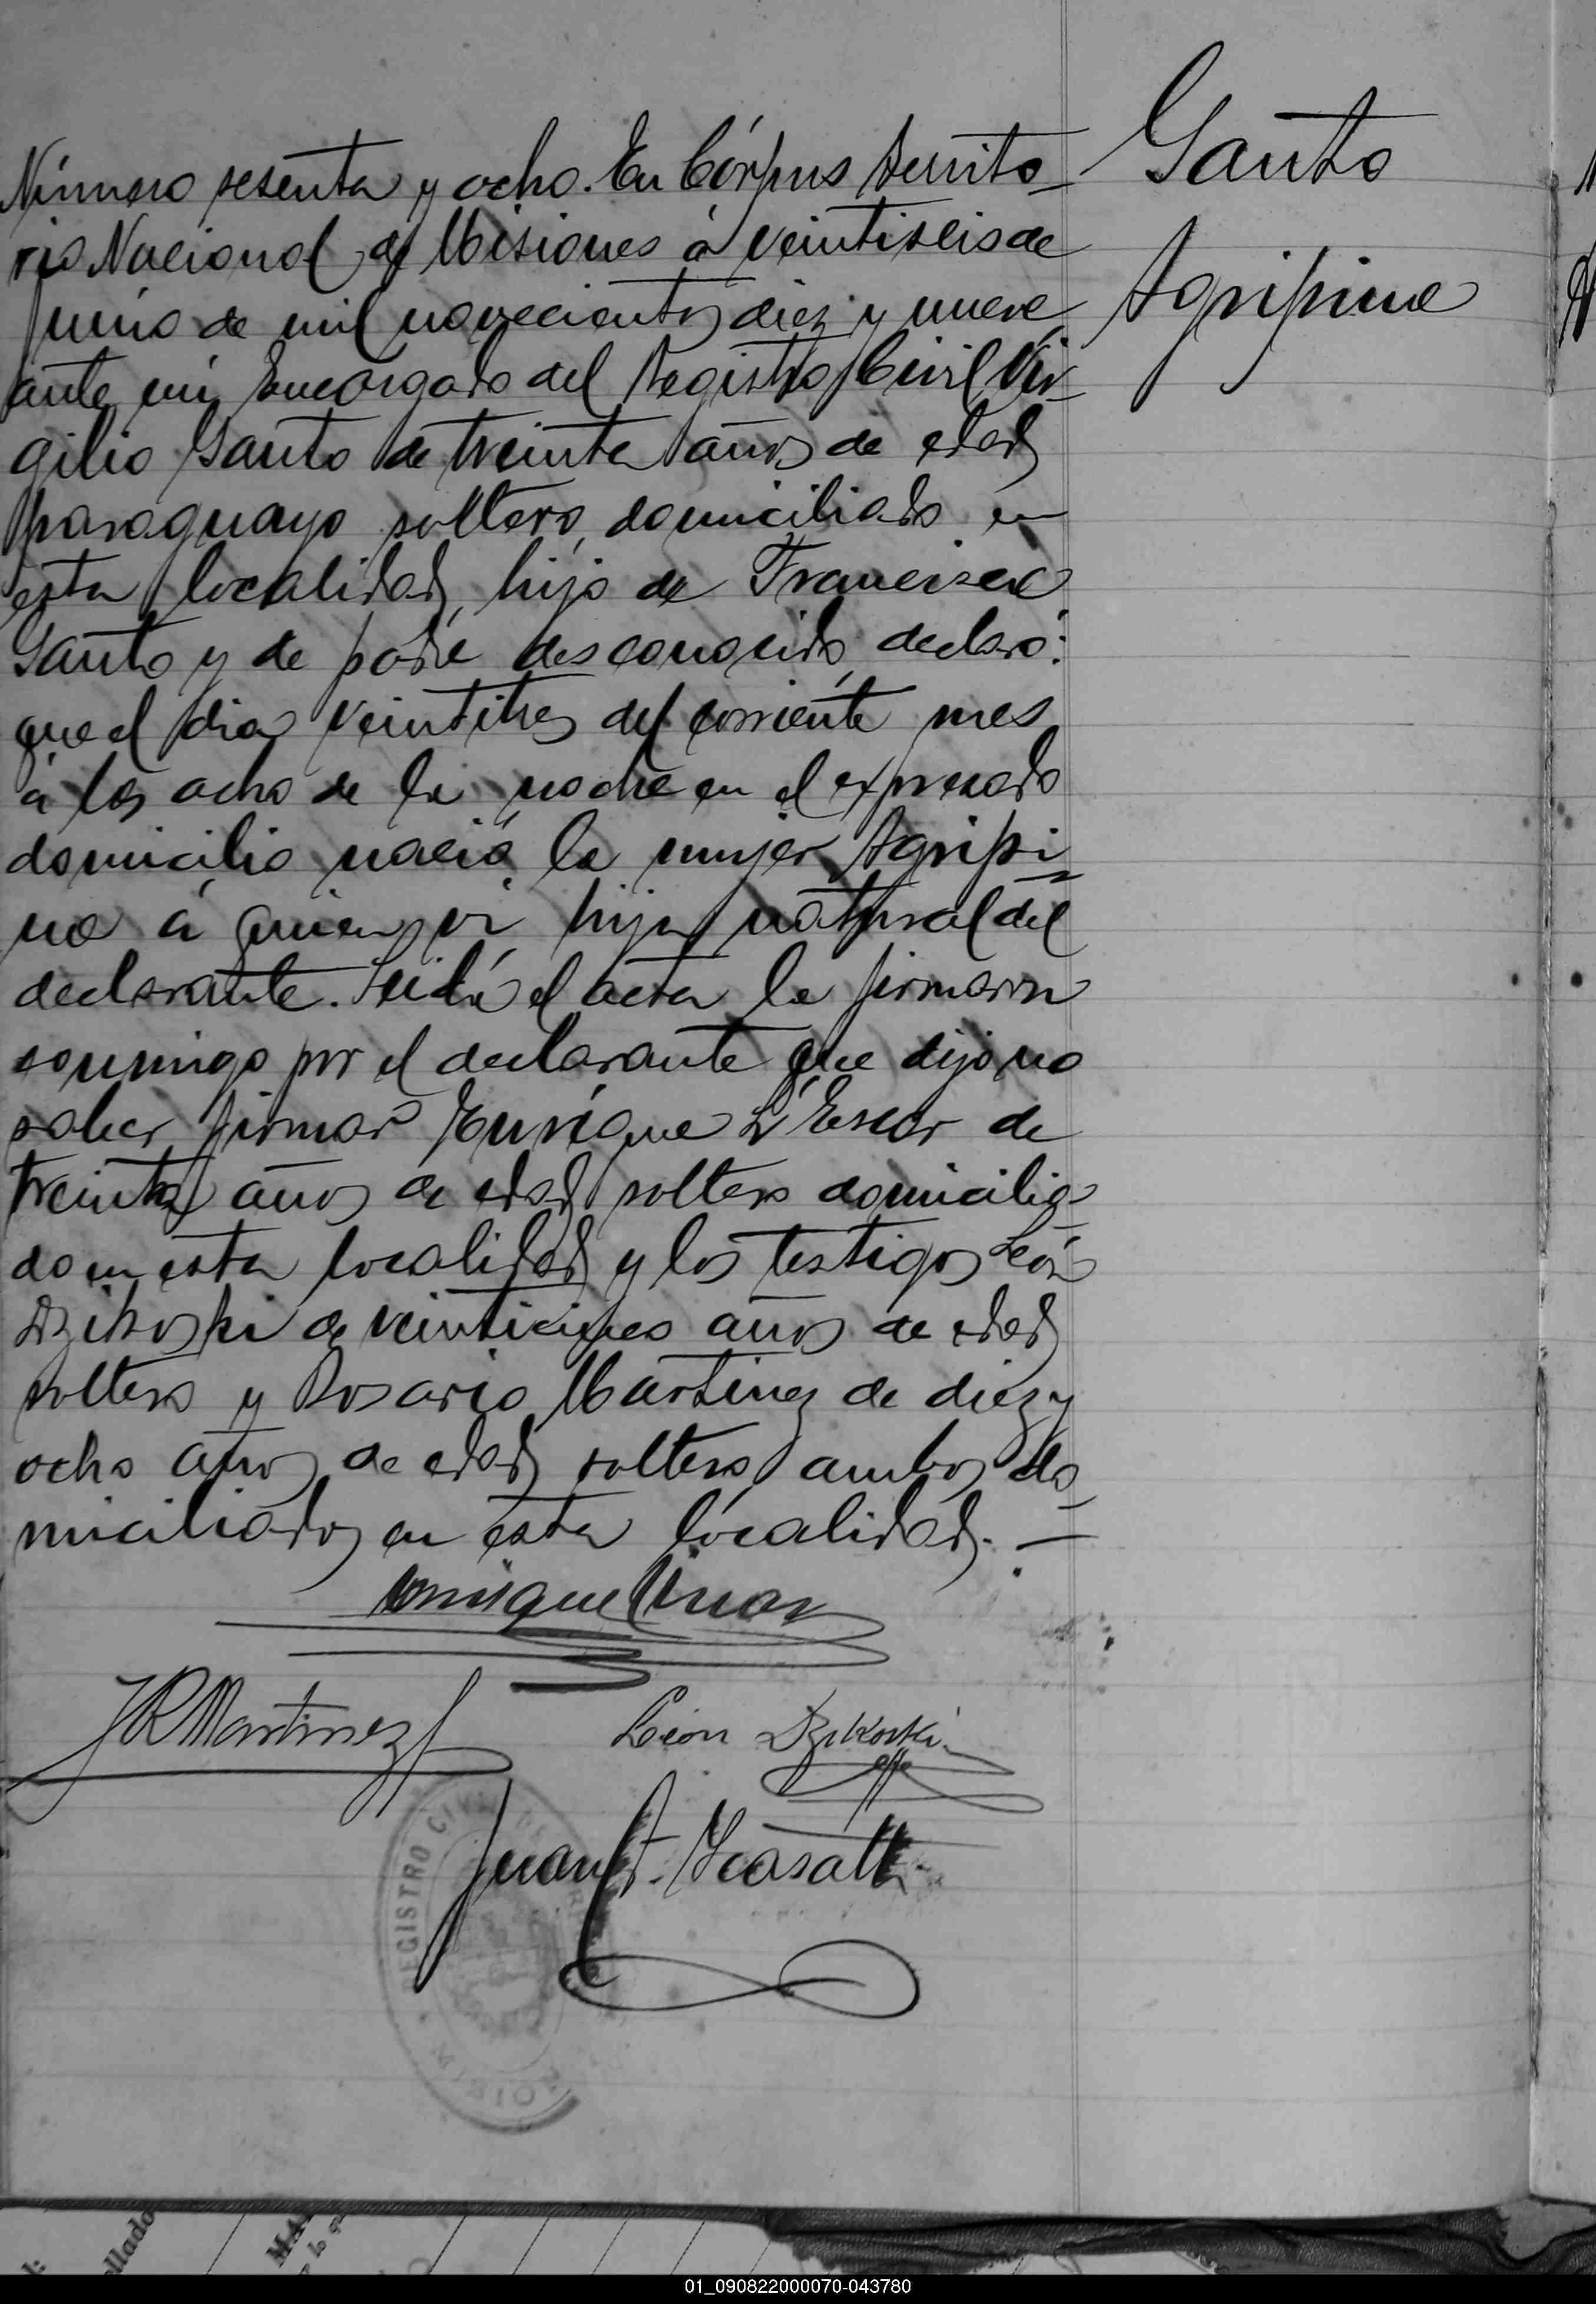 Número sesenta y ocho. En Córpus Territo-
rio Nacional de Misiones á veintiseis de
junio de mil novecientos diez y nueve
ante mí Encargado del Registro Civil Vir-
gilio Santo de treinta años de edad
paraguayo soltero, domiciliado en
esta localidad, hijo de Francisca
Santo y de padre desconocido, declaró:
que el dia veintitres del corriente mes
á las ocho de la noche en el expresado
domicilio nació la mujer Agripi-
na á quien vi hija natural del
declarante. Leida el acta la firmaron
conmigo por el declarante que dijo no
saber firmar Enrique de
treinta años de edad soltero domicilia-
do en esta localidad y los testigos León
Dzikoski de veinticinco años de edad
soltero y Rosario Martinez de diez y
ocho años de edad soltero ambos do-
miciliados en esta localidad. —
Enrique
JR Martinez
León Dzikoski
Juan
REGISTRO CIVIL
Santo
Agripina
01_090822000070-043780